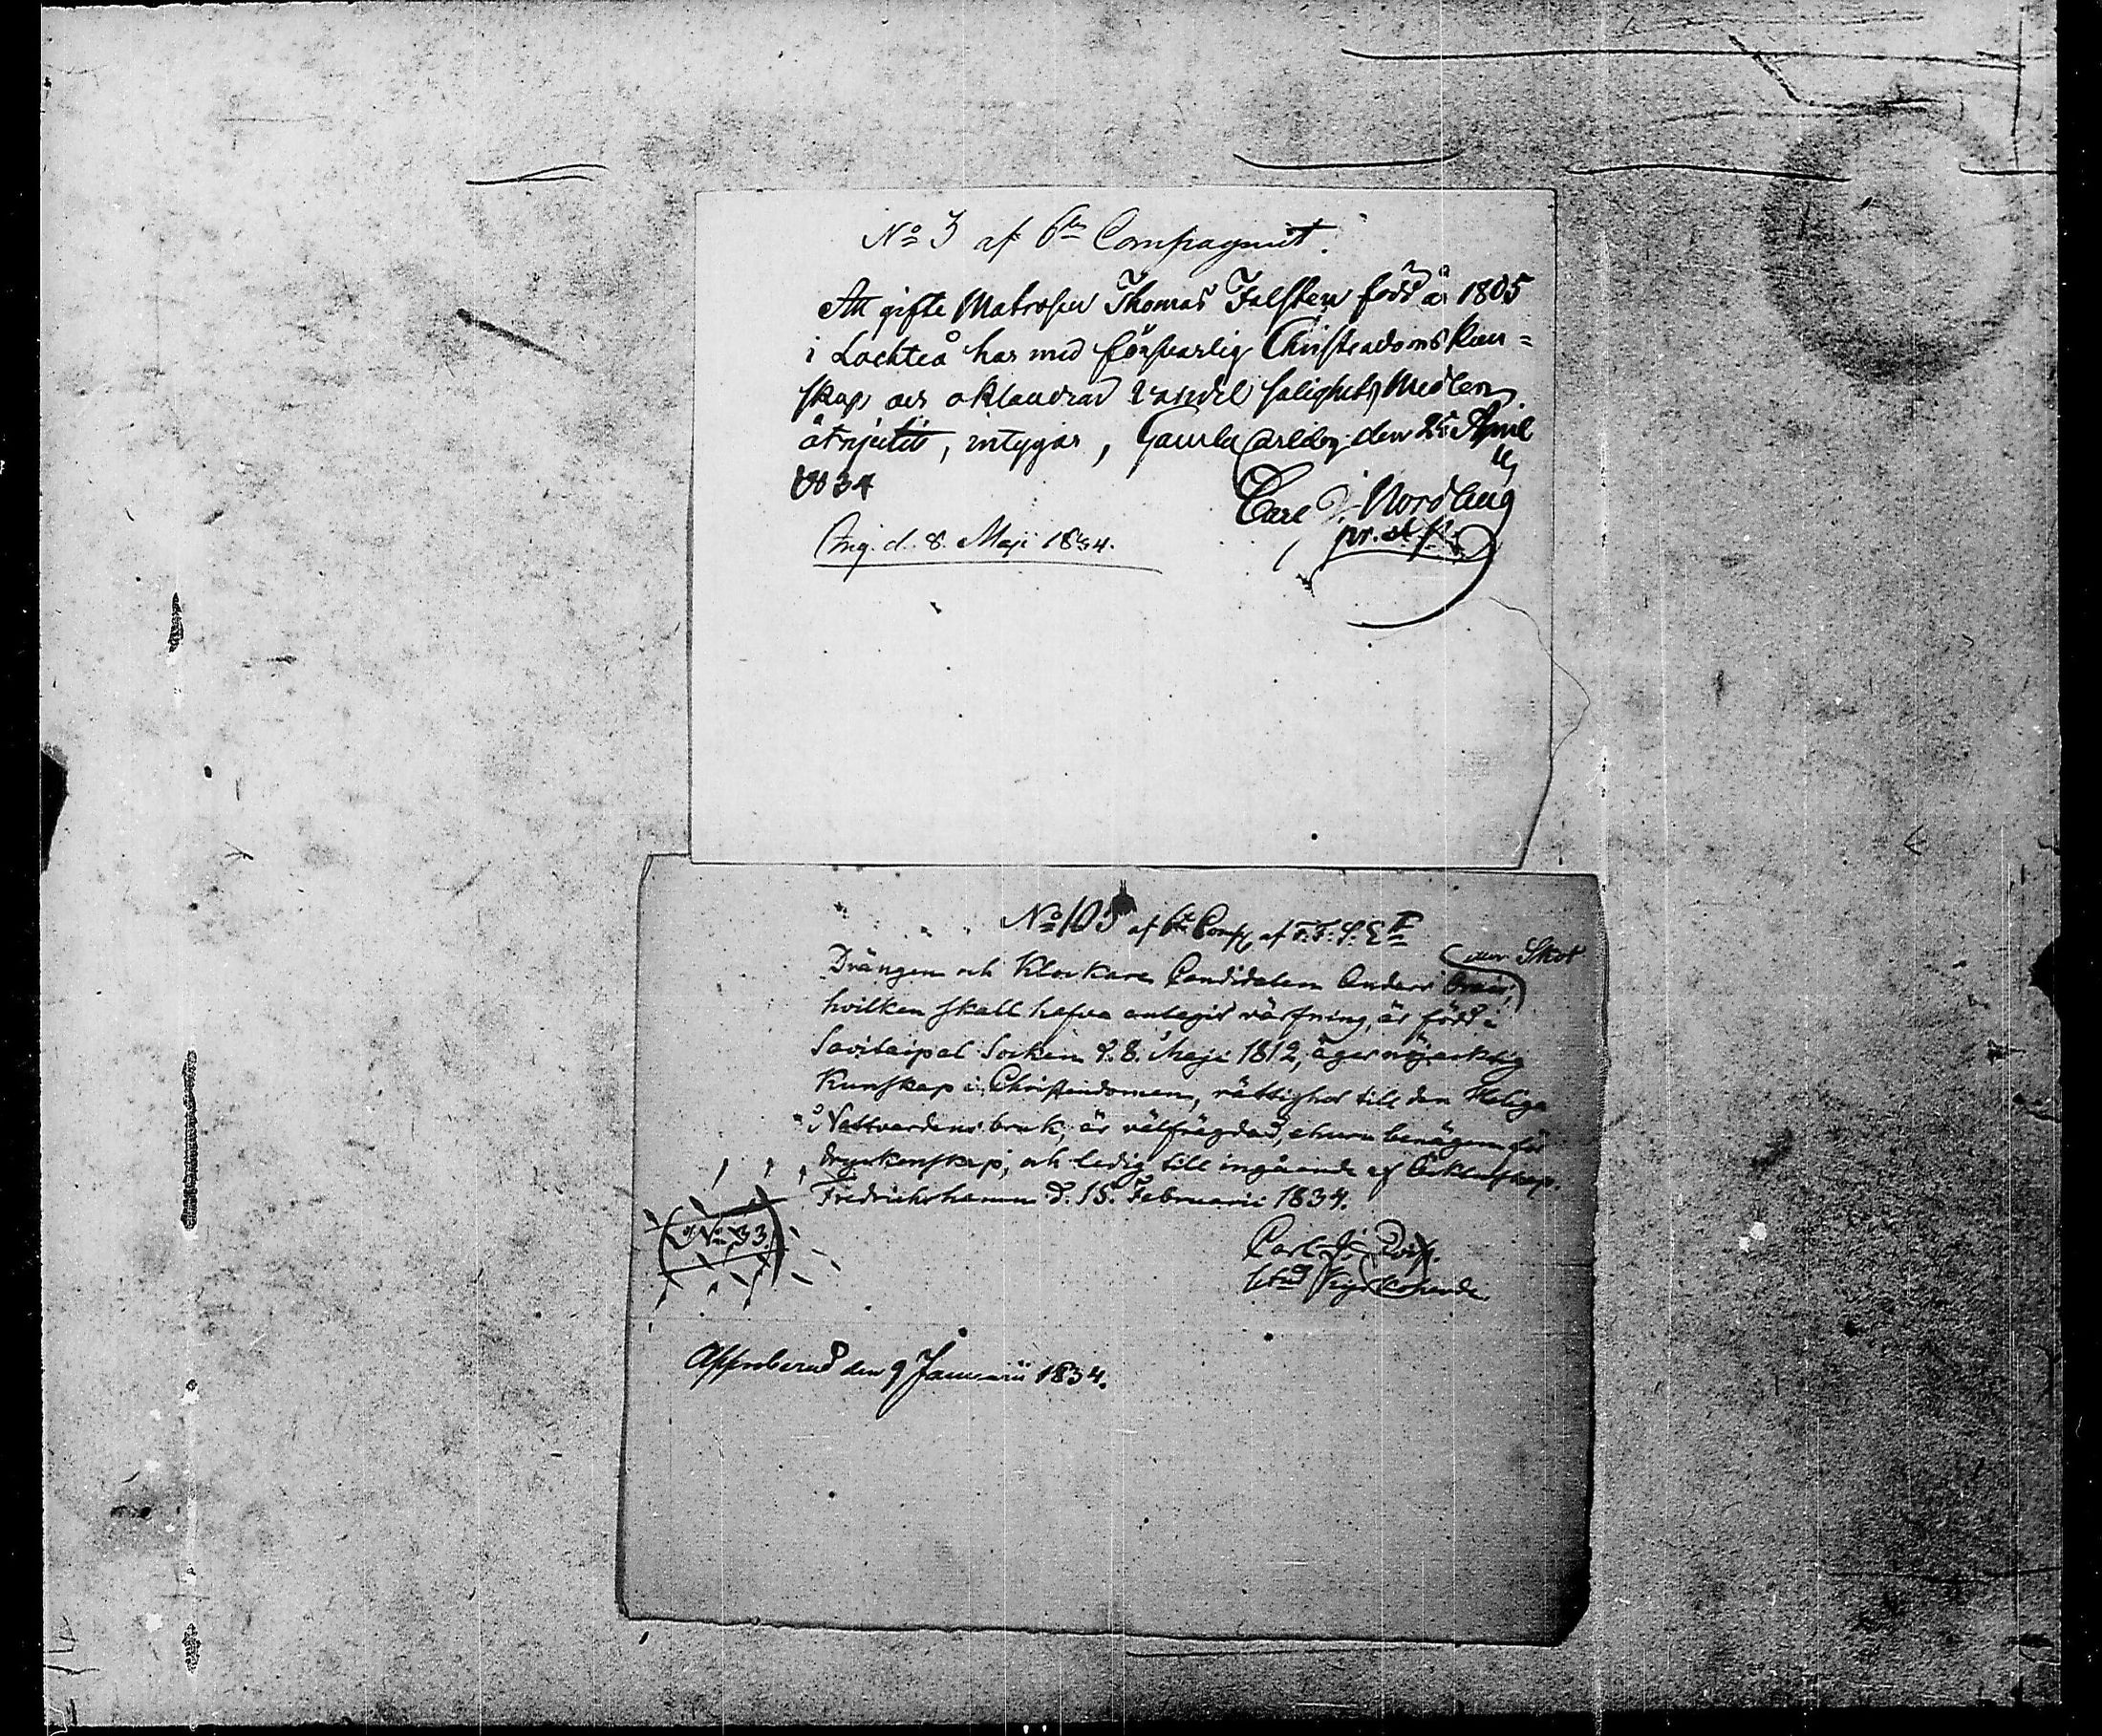 No 3 af 6te Compagniet.
Att gifte Matrosen Thomas Falsten född år 1805
i Lochteå har med försvarlig Christendoms kun=
skap och oklandrad vandel salighets Medlen
åtnjutit, intygar, Gamla Carleby den 25 April
1834
Carl J. Nordlung
pr. st.
Ang. d. 8. Maji 1834.
No 103 af 6te Comp. af F. F. S. E.
eller Skot
Drängen och Klockare Candidaten Anders
hvilken skall hafva antagit värfning, är född i
Savitaipal Socken d. 8. Maji 1812, äger nöjaktig
Kunskap i Christendomen, rättighet till den Heliga
Nattvardens bruk, är välfrägdad, ehuru benägen för
dryckenskap, och ledig till ingående af Äcktenskap.
Fredrichshamn d. 15. Februarii 1834.
No 33.
Carl
Kyrkoherde
Approberad den 9 Januarii 1834.